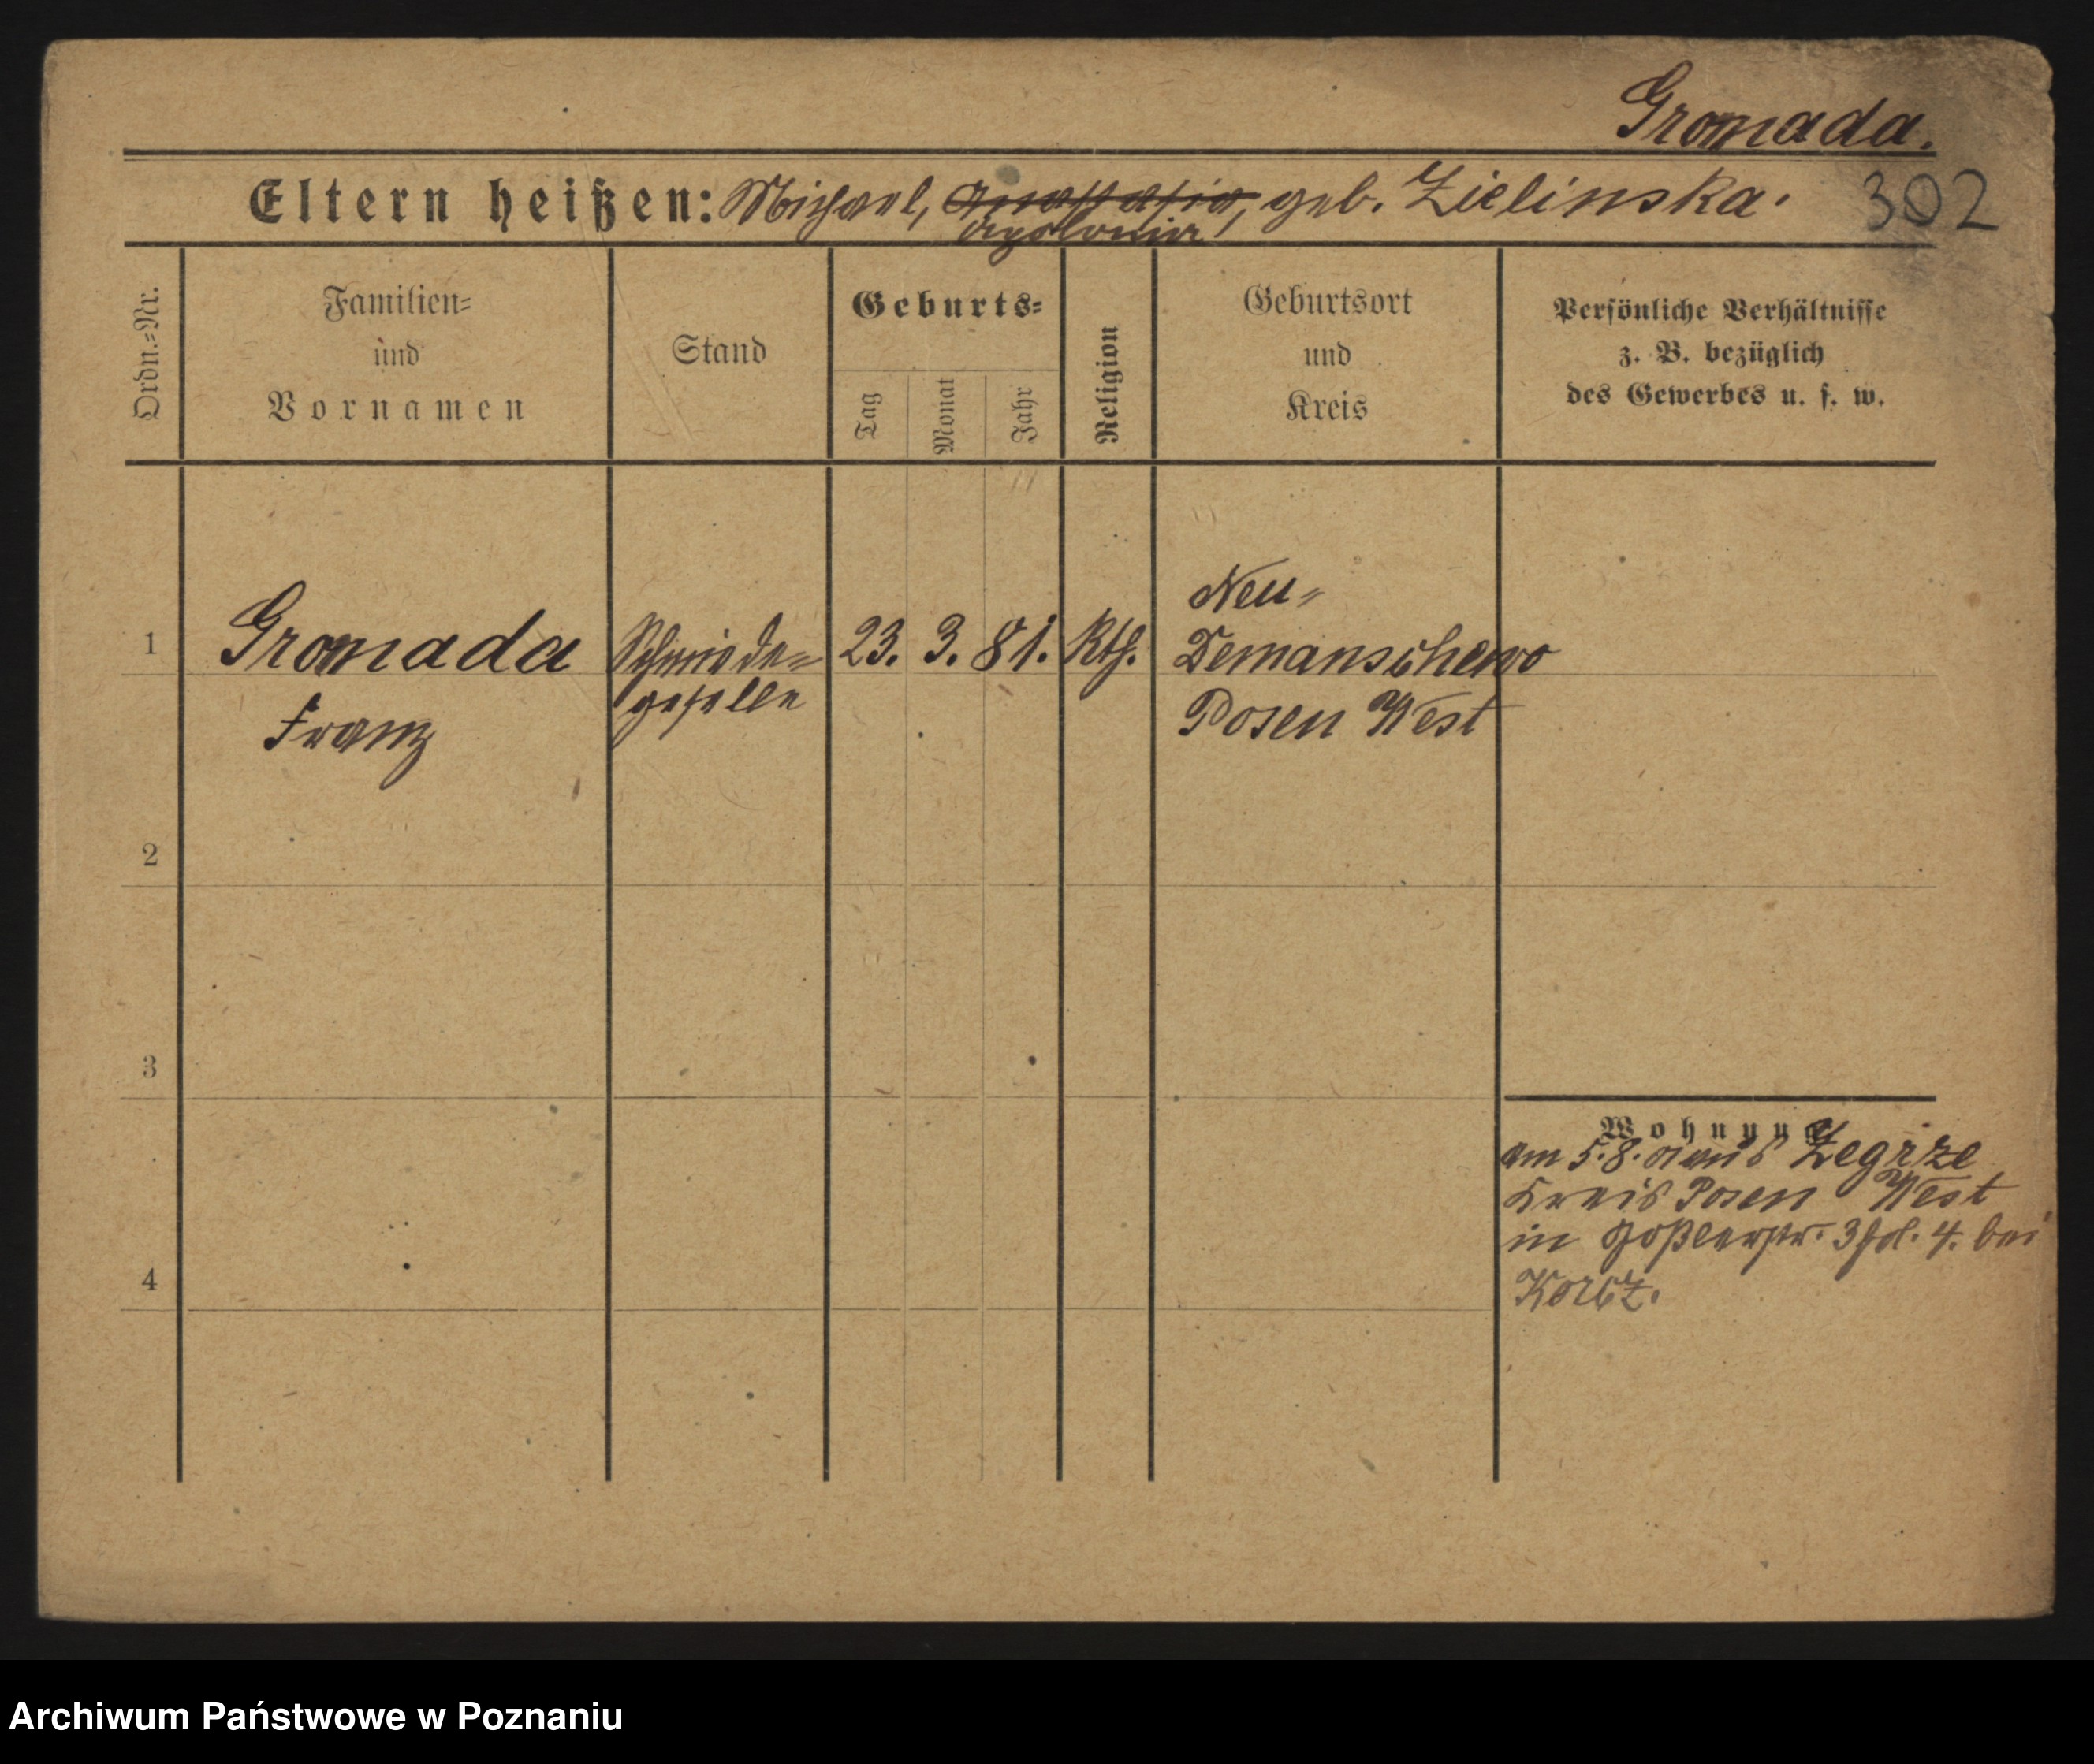 Gromada.
Eltern heißen: Michael, Anastasia, geb. Zielinska. 302
Apolonia
Ordn.=Nr.
Familien=
und
Vornamen
Stand
Geburts=
Tag
Monat
Jahr
Religion
Geburtsort
und
Kreis
Persönliche Verhältnisse
z. B. bezüglich
des Gewerbes u. s. w.
Neu=
1 Gromada Schmiede= 23. 3. 81. Kth. Demanschewo
Franz geselle Posen West
2
3
Wohnung
am 5.8. aus Zegrze
Kreis Posen West
in Goßlerstr. 3 4. bei
4
Archiwum Państwowe w Poznaniu